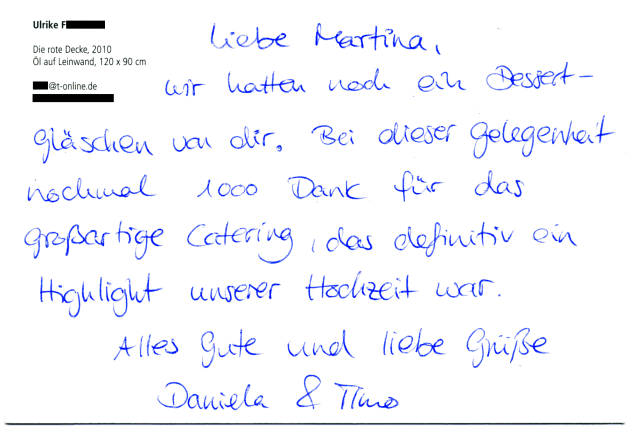 Ulrike F
Die rote Decke, 2010
Öl auf Leinwand, 120 x 90 cm
@t-online.de
Liebe Martina,
wir hatten noch ein Dessert-
gläschen von dir. Bei dieser Gelegenheit
nochmal 1000 Dank für das
großartige Catering, das definitiv ein
Highlight unserer Hochzeit war.
Alles Gute und liebe Grüße
Daniela & Timo